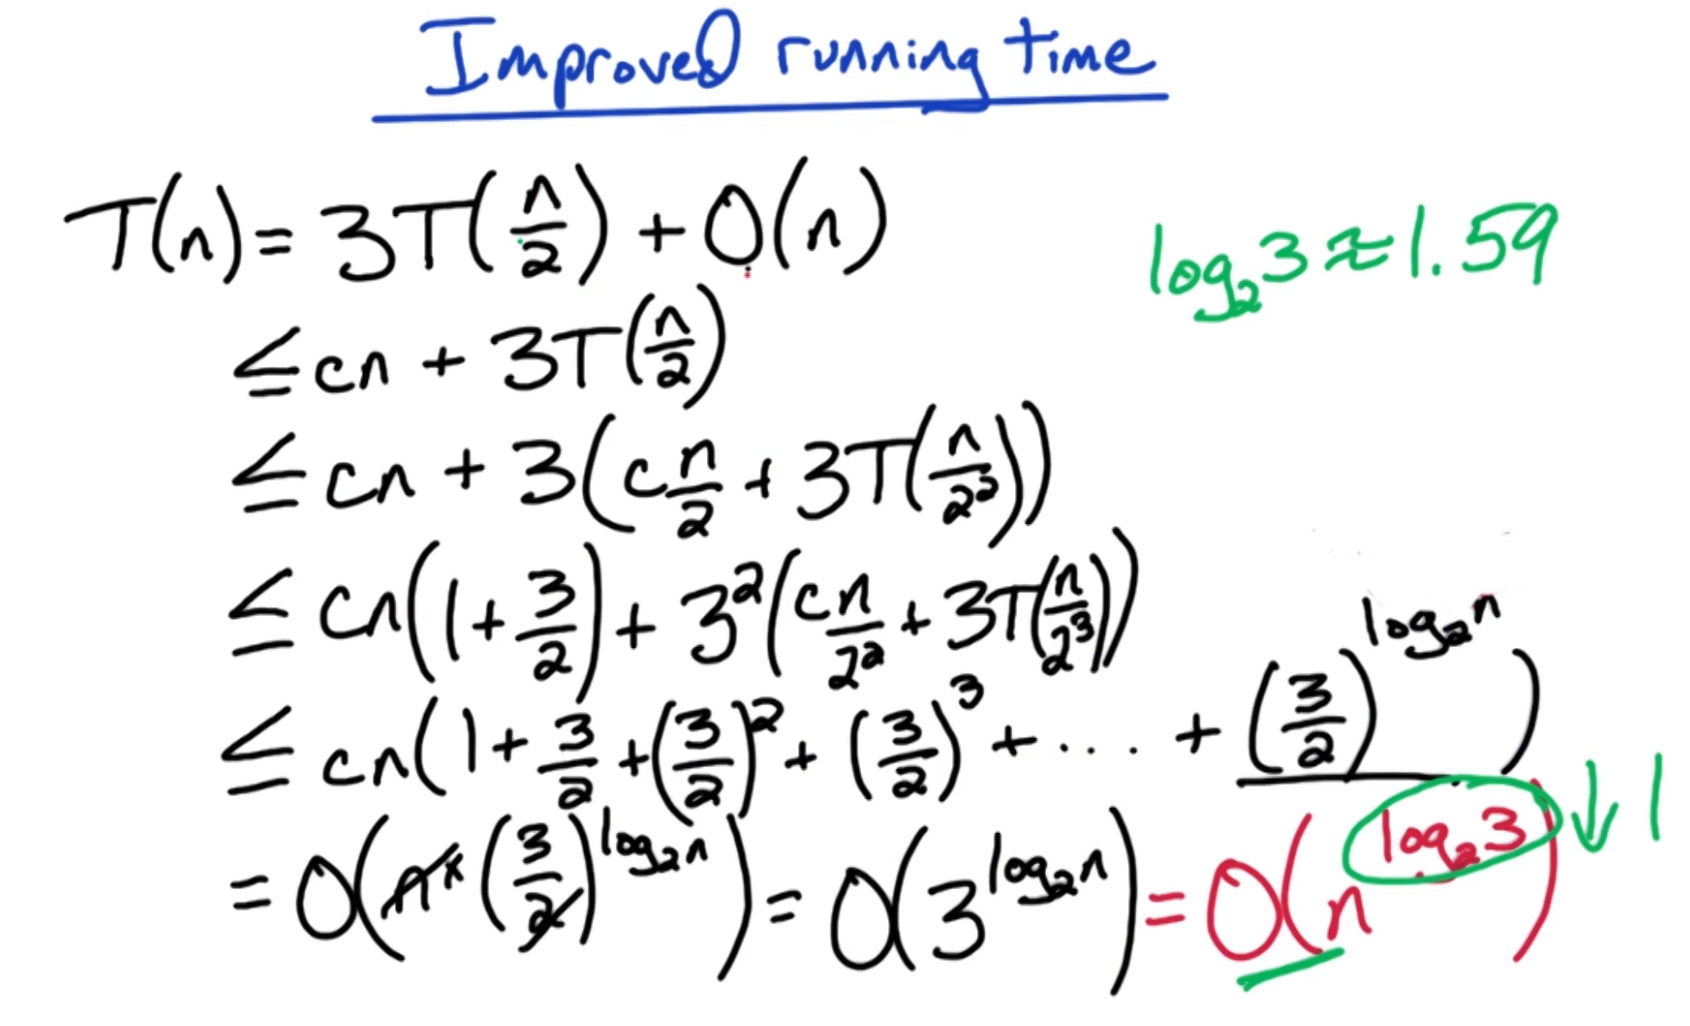 Improved running time
T(n) = 3T(n/2) + O(n)
log₂3 ≈ 1.59
≤ cn + 3T(n/2)
≤ cn + 3(c n/2 + 3T(n/2²))
≤ cn(1 + 3/2) + 3²(c n/2² + 3T(n/2³))
≤ cn(1 + 3/2 + (3/2)² + (3/2)³ + .... + (3/2)^(log₂n))
= O(n × (3/2)^(log₂n)) = O(3^(log₂n)) = O(n^(log₂3)) ↓ 1